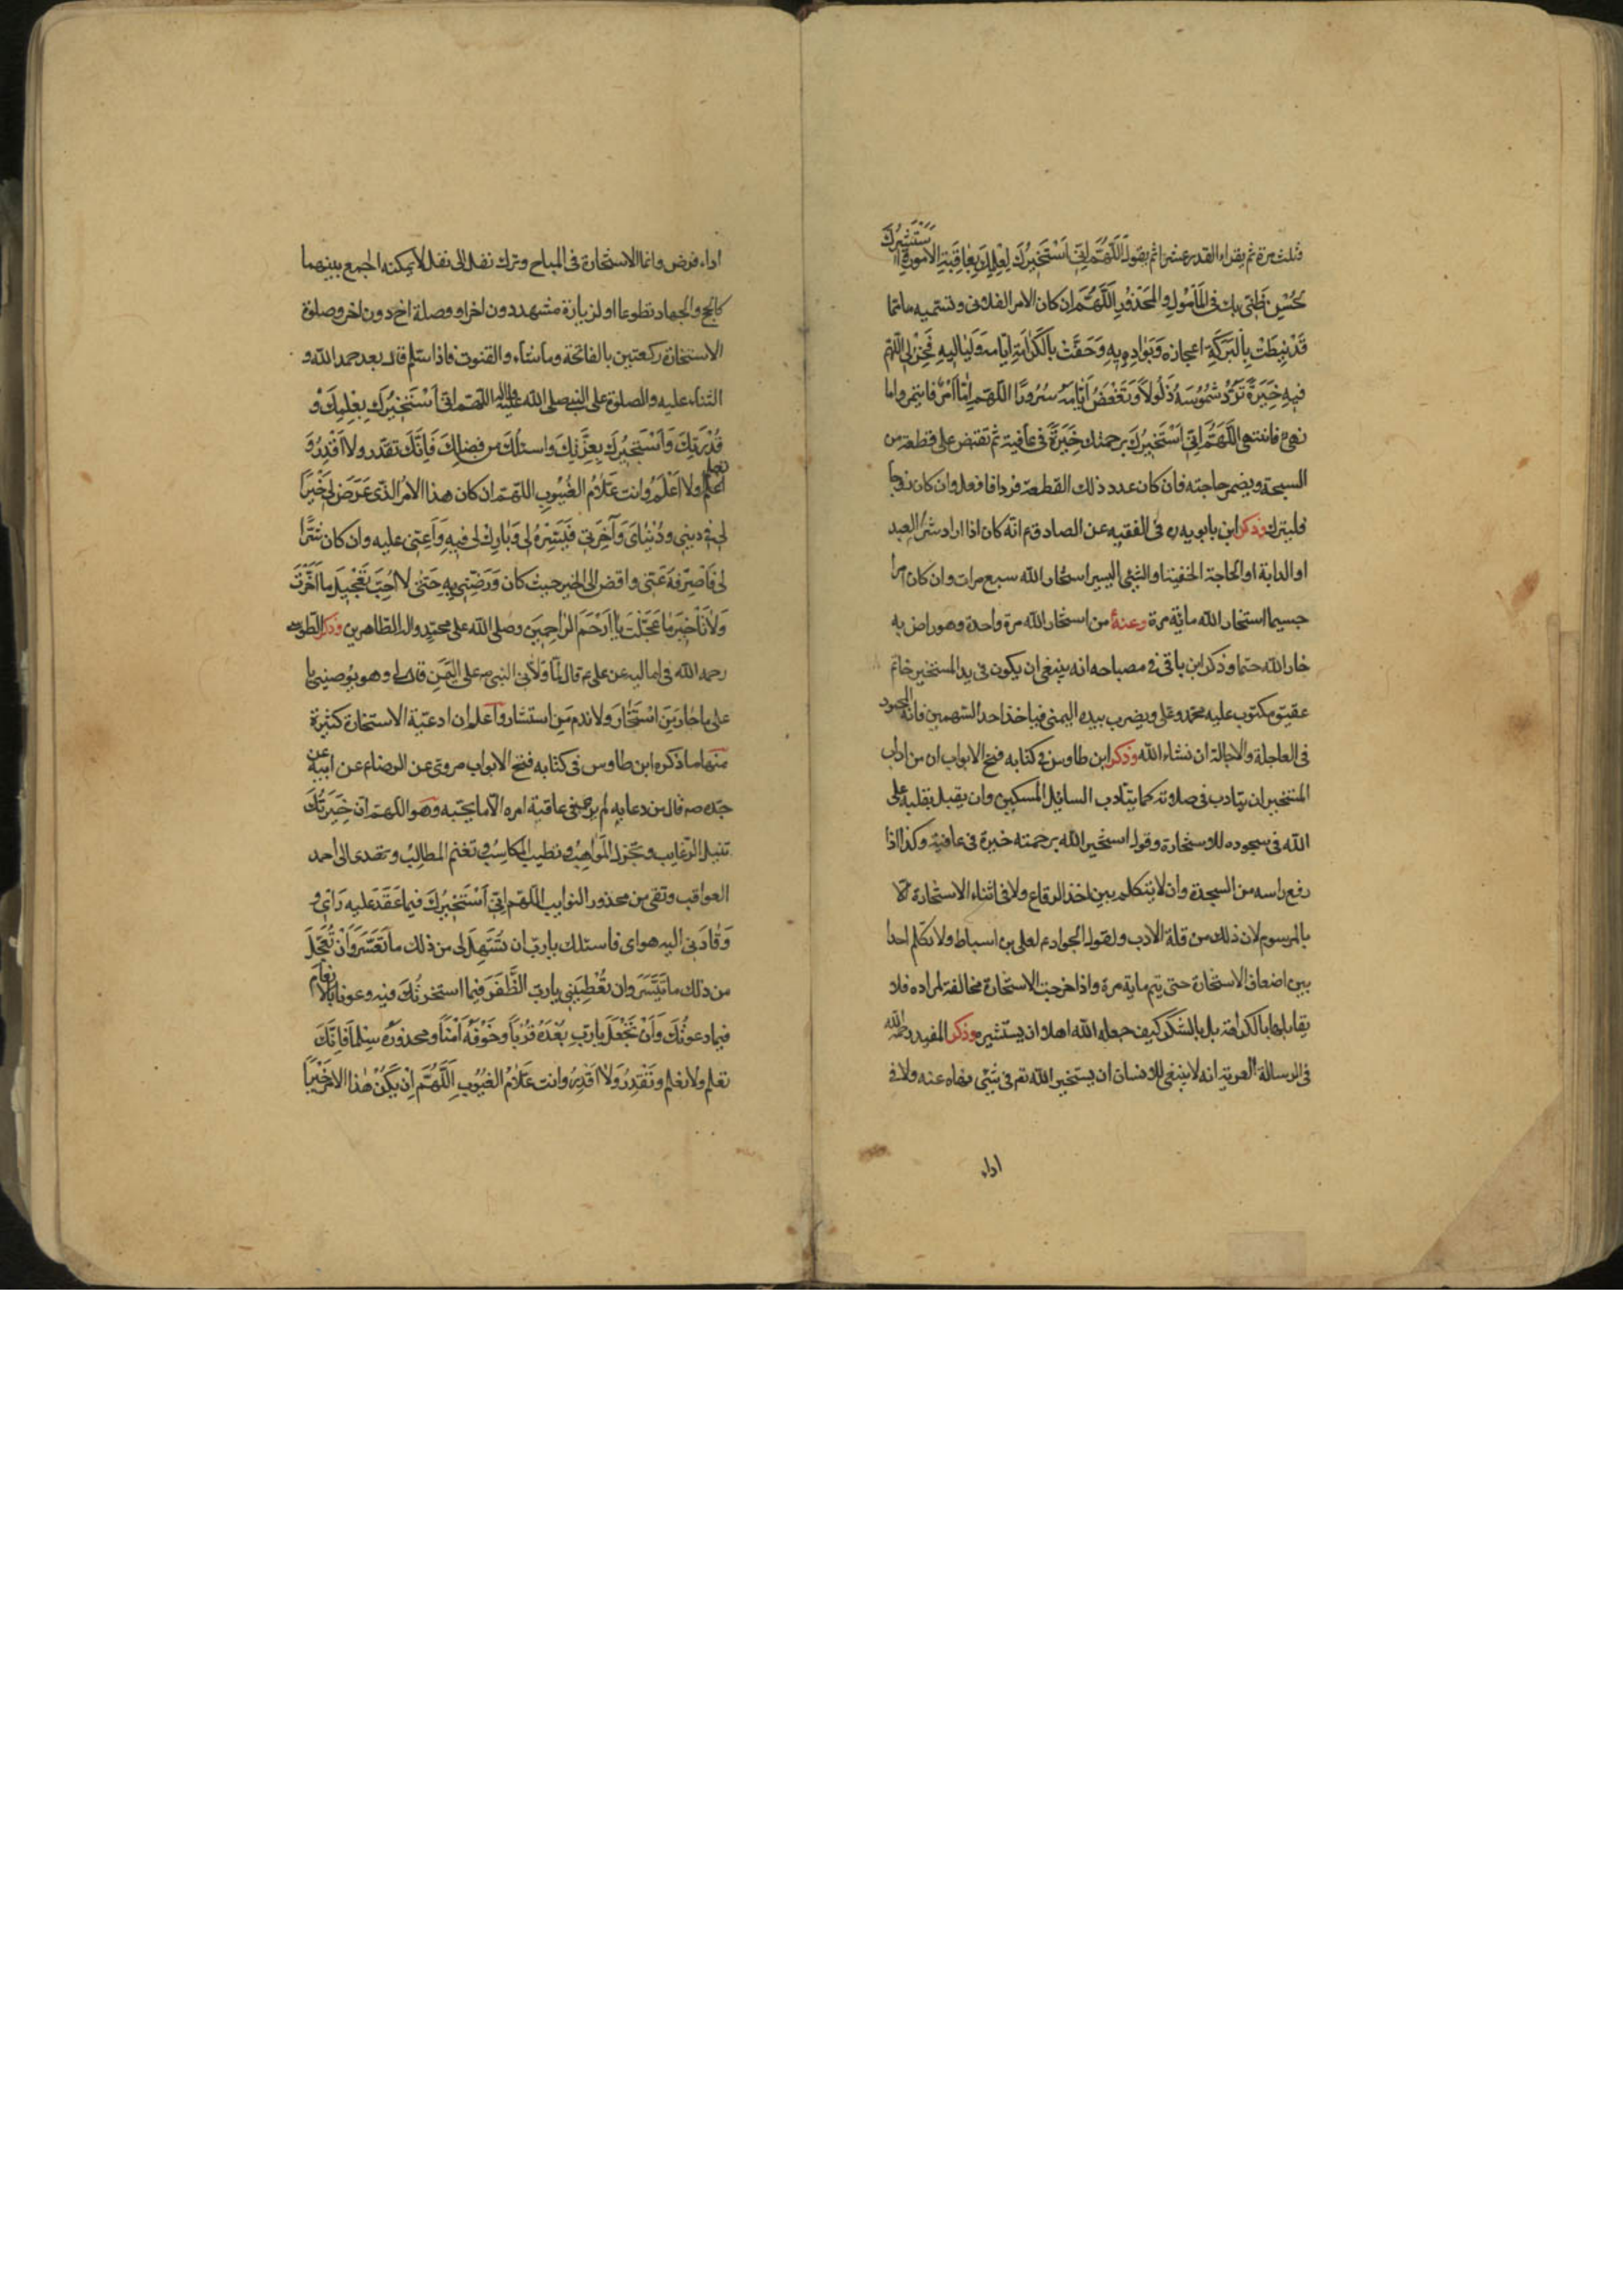 فثلث مرة ثم يقراء القدر عشرا ثم يقول اَللّهُمَّ اِنّى اَسْتَخيرُكَ لِعِلْمِكَ بِعٰاقِبَةِ الامور وَاَسْتَشيرُكَ
لِحُسْنِ ظَنّى بِكَ فى الْمَأمُولِ وَالْمَحْذُورِ اَللّهُمَّ ان كان الامر الفلانى وتسميه مما
قَدْ نيطَتْ بِالْبَرَكَةِ اعجازه وَبَوٰاديهِ وَحَفَّتْ بِالْكَرٰامَةِ ايّامه وَلَياليهِ فَخِرْلى اللّهم
فيهِ خِيَرَةً تَرُدُّ شَمُوسَهُ ذَلُولاً وَتَقْعَضُ اَيّٰامَهُ سُرُورًا اللّهم اِمّا اَمْرٌ فائتمر واما
نهى فانتهى اللّهُمَّ اِنّى اَسْتَخيرُكَ برحمتك خِيَرَةً فى عافية ثم تقبض على قطعة من
السبحة ويضمر حاجته فان كان عدد ذلك القطعة فردا فافعل وان كان زوجا
فليترك وذكر ابن بابويه ره فى الفقيه عن الصادق ع انّه كان اذا اراد شرٰاء العبد
او الدابة او الحاجة الخفيفة او الشئى اليسير استخار الله سبع مرات وان كان امرا
جسيما استخار الله مائة مرة وعنهُ من استخار الله مرة واحدة وهو راض به
خار الله حتما وذكر ابن باقى فى مصباحه انه ينبغى ان يكون فى يد المستخير خاتم
عقيق مكتوب عليه محمد وعلى ويضرب بيده اليمنى فياخذ احد السهمين فانه المحمود
فى العاجلة والاجالة ان شاء الله وذكر ابن طاوس فى كتابه فتح الابواب ان من اداب
المستخير ان يتادب فى صلوته كما يتادب السائل المسكين وان يقبل بقلبه على
الله فى سجوده للاستخارة وقول استخير الله برحمته خيرة فى عافية وكذا اذا
رفع راسه من السجدة وان لا يتكلم بين اخذ الرقاع ولا فى اثناء الاستخارة الا
بالمرسوم لان ذلك من قلة الادب ولقول الجواد ع لعلى بن اسباط ولا تكلم احدا
بين اضعاف الاستخارة حتى يتم ماية مرة واذا خرجت الاستخارة مخالفة لمراده فلا
يقابلها بالكراهة بل بالشكر كيف جعله الله اهلا ان يستشيره وذكر المفيد رحمه الله
فى الرسالة العزية انه لا ينبغى للانسان ان يستخير الله تع فى شئى نهاه عنه ولا فى
اداء
اداء فرض وانما الاستخارة فى المباح وترك نفل الى نفل لا يمكنه الجمع بينهما
كالحج والجهاد تطوعا او لزيارة مشهد دون اخر او وصلة اخ دون اخر وصلوة
الاستخارة ركعتين بالفاتحة وما شاء والقنوت فاذا سلم قال بعد حمد الله و
الثناء عليه والصلوة على النبى صلى الله عليه واله اللّهم انّى اَسْتَخيرُكَ بِعِلْمِكَ وَ
قُدْرَتِكَ وَاَسْتَخيرُكَ بِعِزَّتِكَ واسئلك من فضلك فَاِنَّكَ تقدر ولا اَقْدِرُ وَ
تعلم ولا اَعْلَمُ وانت عَلّامُ الغُيُوبِ اللّهم ان كان هذا الامر الذى عَرَضَ لى خَيْرًا
لى فى دينى وَدُنْيٰاىَ وَآخِرَتى فَيَسِّرْهُ لى وَبٰارِكْ لى فيهِ وَاَعِنّى عليه وان كان شَرًّا
لى فَاصْرِفْهُ عَنّى واقض لى الخير حيث كان وَرَضِّنى بِهِ حَتّى لا اُحِبَّ تَعْجيلَ ما اَخَّرْتَ
وَلاٰ تَأخيرَ مٰا عَجَّلْتَ يٰا اَرْحَمَ الرّاحِمينَ وصلى الله على محمد واله الطاهرين وذكر الطوسى
رحمه الله فى اماليه عن على ع قال لمّا ولّانى النبى ص على اليمن قال لى وهو يوصينى يا
على ما حٰارَ مَنِ اسْتَخٰارَ ولا ندم مَنِ استشار وَاعلم ان ادعية الاستخارة كثيرة
منها ما ذكره ابن طاوس فى كتابه فتح الابواب مروى عن الرضا ع عن ابيه عن
جده ص قال من دعا به لم ير فى عاقبة امره الّا ما يحبه وهو اللّهم ان خِيَرَتَكَ
تنيل الرغايب وتجزل المَواهِبَ وتطيب المكاسِبَ وتغنم المطالب وتهدى الى احمد
العواقب وتقى من محذور النوايب اللّهم اِنّى اَسْتَخيرُكَ فيما عَقَدَ عليه رَأيى وَ
وَقٰادَنى اليه هواى فاسئلك يا رب ان تُسَهِّلَ لى من ذلك ما تَعَسَّرَ وَاَنْ تُعَجِّلَ
من ذلك ما تَيَسَّرَ وان تُعْطِيَنى يا رب الظَّفَرَ فيما استخرتُكَ فيه وعونا بالانعام
فيما دعوتُكَ وَاَنْ تَجْعَلَ يارب بُعْدَهُ قُرْباً وخَوْفَهُ اَمْناً ومحذورَهُ سِلْماً فَاِنَّكَ
تعلم ولا اعلم وتَقْدِرُ وَلٰا اَقْدِرُ وانت عَلّامُ الغُيُوبِ اَللّهُمَّ اِنْ يَكُنْ هٰذا الامر خَيْراً